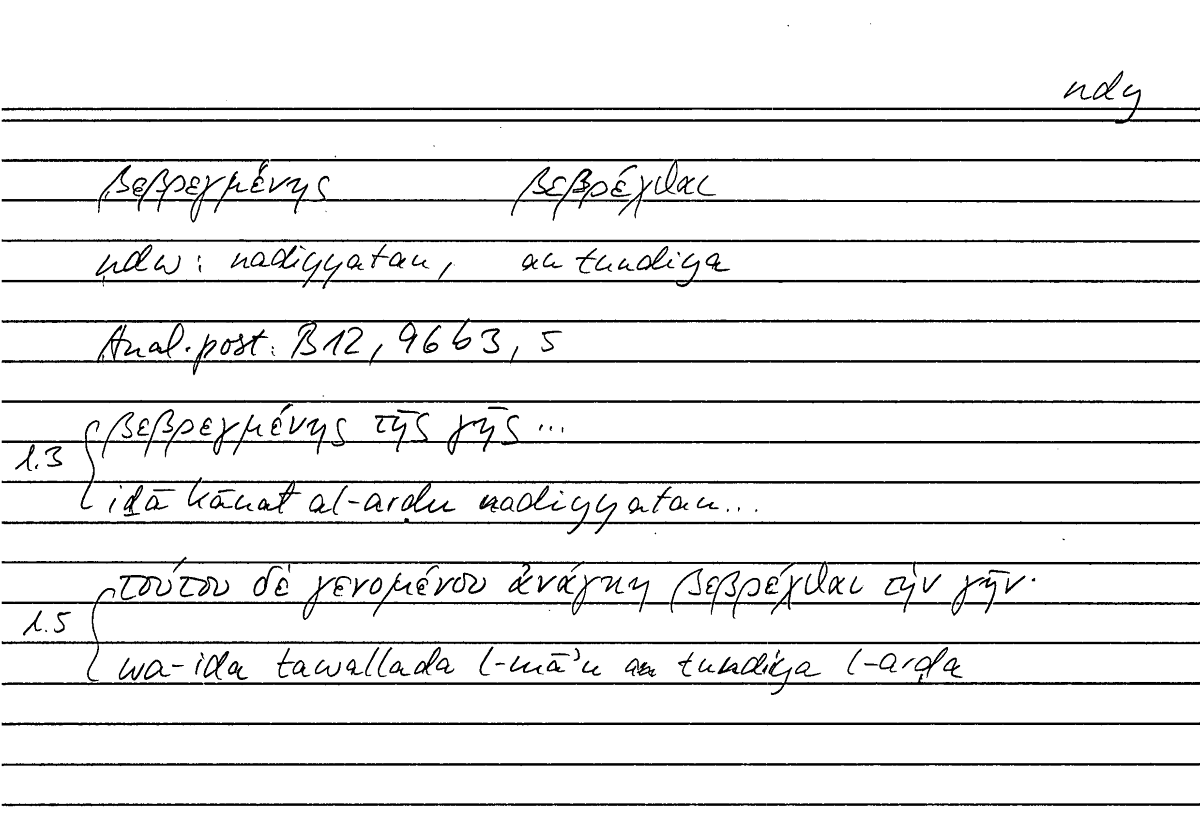 ndy
βεβρεγμένης βεβρέχθαι
ndw: nadiyyatan, an tundiya
Anal. post. B12, 96b3, 5
βεβρεγμένης τῆς γῆς ...
l.3
iḏā kānat al-arḍu nadiyyatan...
τούτου δὲ γενομένου ἀνάγκη βεβρέχθαι τὴν γῆν·
l.5
wa-iḏa tawallada l-mā'u an tundiya l-arḍa